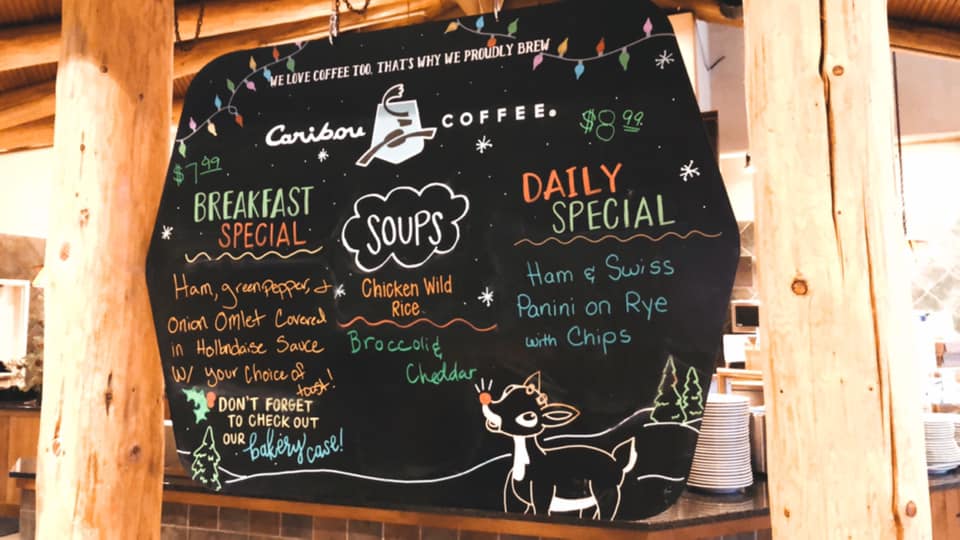 WE LOVE COFFEE TOO, THAT'S WHY WE PROUDLY BREW
Caribou COFFEE.
$7.99
BREAKFAST
SPECIAL
Ham, green pepper, +
Onion Omlet Covered
in Hollandaise Sauce
w/ your Choice of
toast!
DON'T FORGET
TO CHECK OUT
OUR bakery case!
SOUPS
Chicken Wild
Rice
Broccoli &
Cheddar
$8.99
DAILY
SPECIAL
Ham & Swiss
Panini on Rye
with Chips